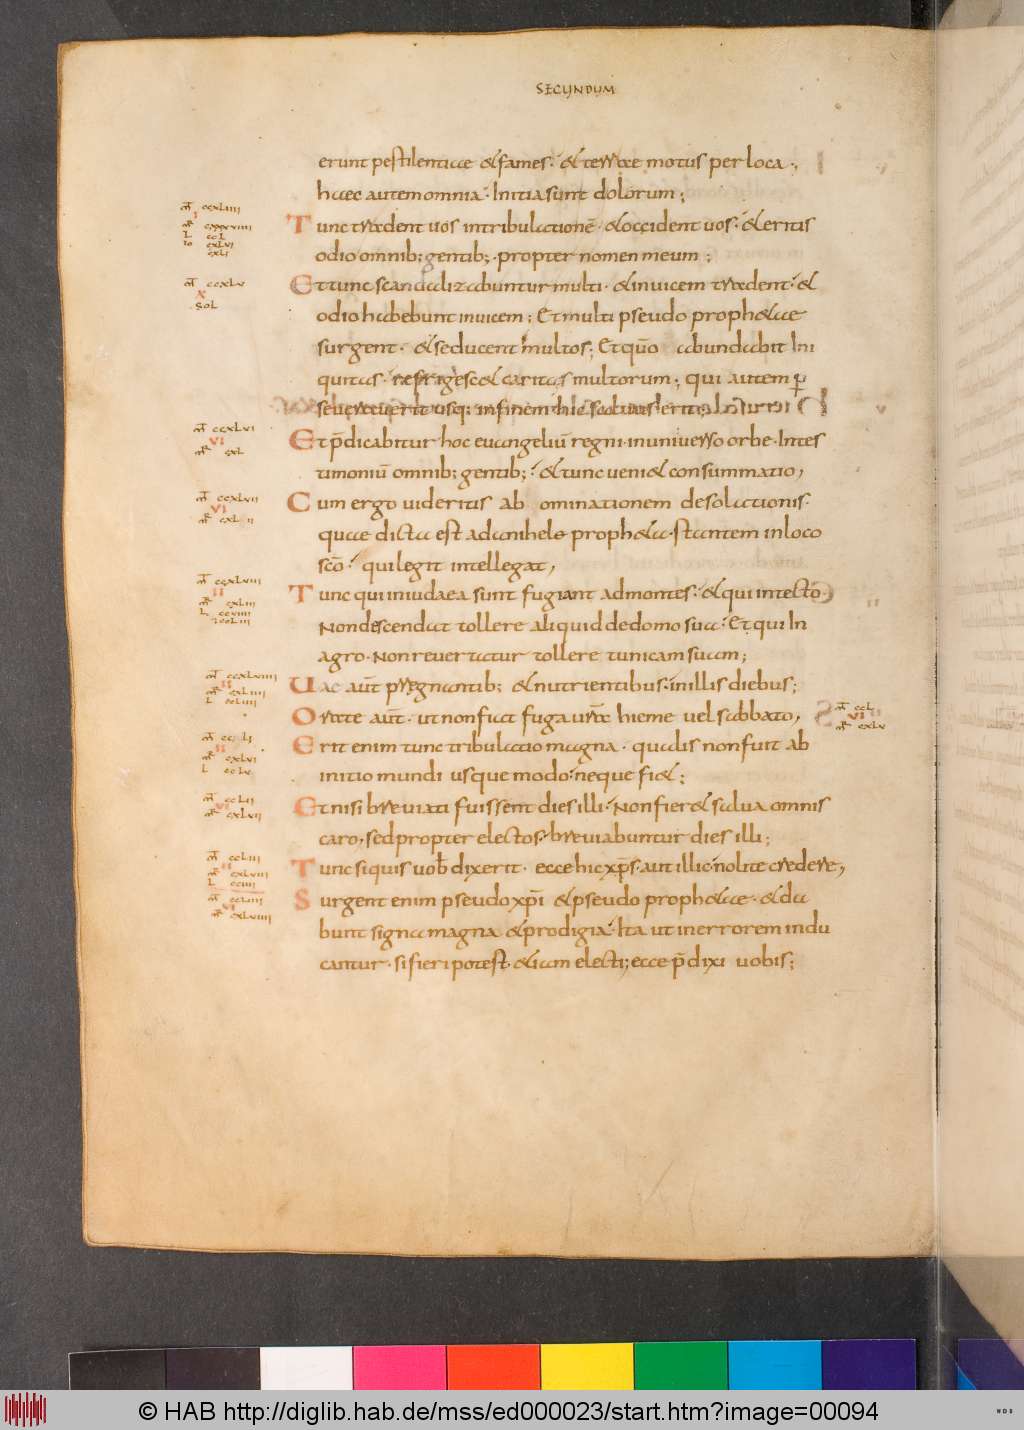 SECUNDUM
erunt pestilentiae & fames· & terrae motus per loca·,
haec autem omnia· Initia sunt dolorum;
mt ccxliiii
Tunc tradent uos intribulationē· & occident uos· & eritis
odio omnib; gentib;· propter nomen meum;
mt ccxlv
X
Sol
Et tunc scandalizabuntur multi· & inuicem tradent· &
odio habebunt inuicem; Et multi pseudo proph&ae
surgent· & seducent multos; Et quō abundabit Ini
quitas· refrigesc& caritas multorum; qui autem p
seuerauerit usq; infinem hic saluus erit
mt ccxlvi
VI
mr cxl
Et p̄dicabitur hoc euangeliū regni· in uniuerso orbe· Intes
timoniū omnib; gentib;· & tunc ueni& consummatio,
mt ccxlvii
VI
Cum ergo uideritis abominationem desolationis·
quae dicta est adanihele proph&a· stantem inloco
scō· qui legit intellegat,
mt ccxlviii
II
mr cxliii
Tunc qui iniudaea sunt fugiant admontes· & qui intecto·
Non descendat tollere aliquid dedomo sua· Et qui In
agro· Non reuertatur tollere tunicam suam;
mt ccxlviiii
II
mr cxliiii
L ccliiii
Uae aūt pregnantib; & nutrientibus· inillis diebus;
Orate aūt· ut non fiat fuga urā hieme uel sabbato,
mt ccl
VI
mr cxlv
mt ccli
II
mr cxlvi
L cclv
Erit enim tunc tribulatio magna· qualis non fuit ab
initio mundi usque modo· neque fi&;
mt cclii
VI
mr cxlvii
Et nisi breuiati fuissent dies illi· Non fier& salua omnis
caro· sed propter electos· breuiabuntur dies illi;
mt ccliii
II
mr cxlviii
Tunc siquis uob dixerit· ecce hic xp̄s· aut illic· nolite credere,
mt ccliiii
VI
mr cxlviiii
Surgent enim pseudo xp̄i & pseudo proph&ae· & da
bunt signa magna & prodigia· Ita ut inerrorem indu
cantur· si fieri potest· &iam electi; ecce p̄dixi uobis;
© HAB http://diglib.hab.de/mss/ed000023/start.htm?image=00094